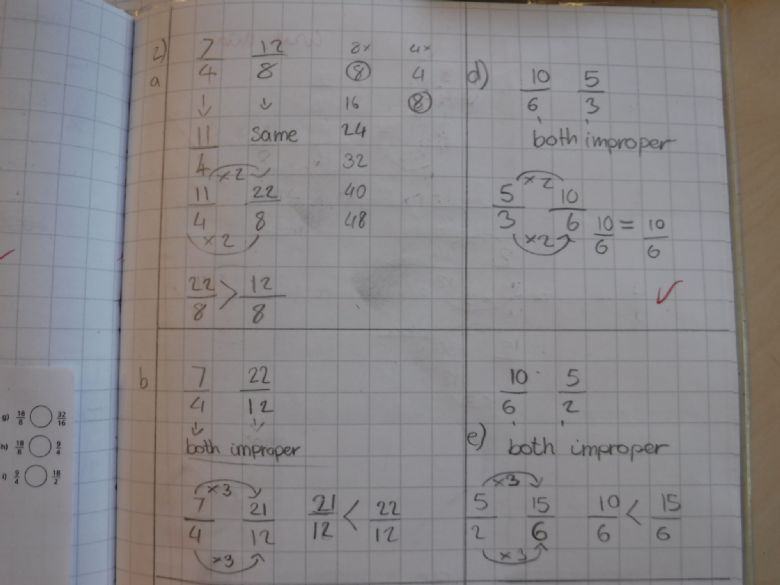 2)
a
7/4 12/8
↓ ↓
11/4 same
×2
11/4 22/8
×2
22/8 > 12/8
8×
8
16
24
32
40
48
4×
4
8
d)
10/6 5/3
both improper
×2
5/3 10/6
×2
10/6 = 10/6
b
7/4 22/12
both improper
×3
7/4 21/12
×3
21/12 < 22/12
e)
10/6 5/2
both improper
×3
5/2 15/6
×3
10/6 < 15/6
g) 18/8 32/16
h) 18/8 9/4
i) 9/4 18/2